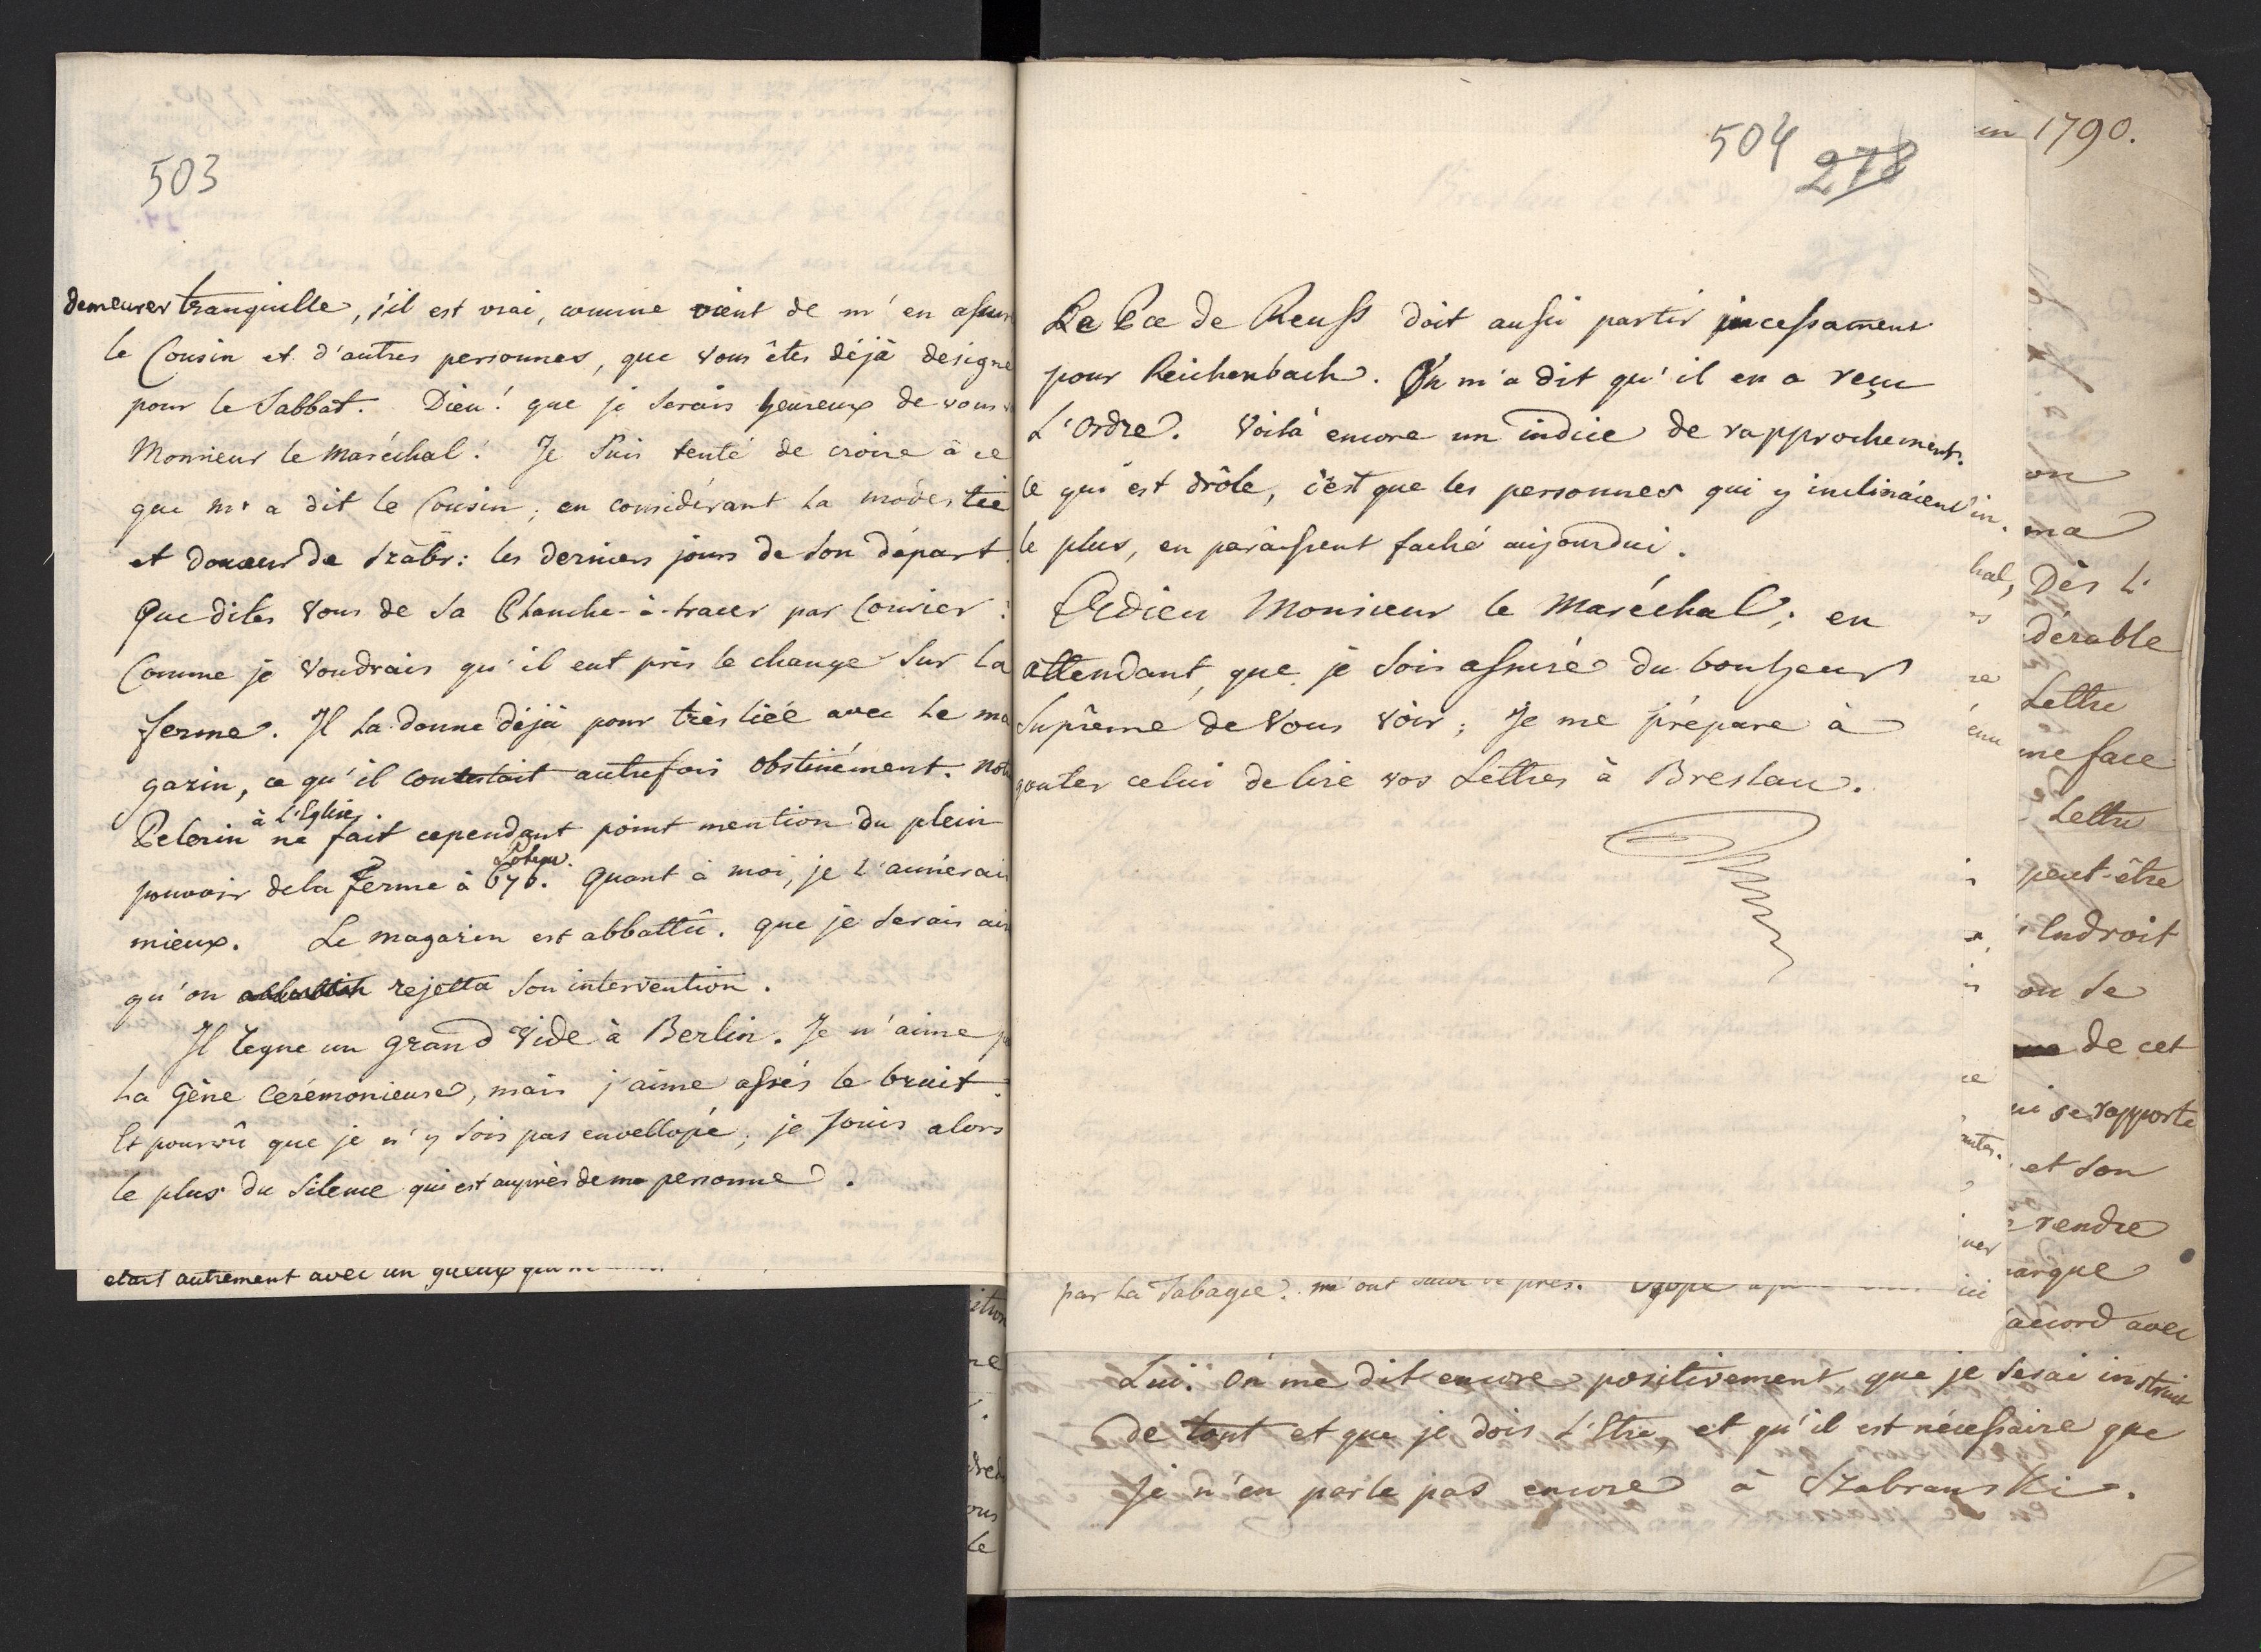 503
demeurer tranquille, s'il est vrai, comme vient de m'en assur
le Cousin et d'autres personnes, que vous êtes déjà designe
pour le Sabbat. Dieu! que je serais heureux de vous
Monsieur le Maréchal! Je suis tenté de croire à ce
que m'a dit le Cousin; en considérant la modestie
et douceur de Szabr: les derniers jours de son départ.
Que dites vous de sa Planche-à-tracer par Courier?
Comme je voudrais qu'il eut pris le change sur la
ferme. Il la donne déjà pour très liée avec le ma
gazin, ce qu'il contestait autrefois obstinément. Notre
à l'Eglise.
Pelerin ne fait cependant point mention du plein
pouvoir de la ferme à 670. Quant à moi, je l'aimerai
mieux. Le magazin est abbattû. que je serais ais
qu'on rejetta son intervention.
Il regne un grand vide à Berlin. Je n'aime p
la Gêne Cerémonieuse, mais j'aime assés le bruit.
Et pourvû que je n'y sois pas envellopé, je jouis alors
le plus du silence qui est auprès de ma personne.
etait autrement avec un gueux
504 278
Le Pce de Reuss doit aussi partir incessament
pour Reichenbach. On m'a dit qu'il en a reçu
L'Ordre. Voilà encore un indice de rapprochement.
Ce qui est drôle, c'est que les personnes qui y inclinaient
le plus, en paraissent faché aujourdui.
Adieu Monsieur le Maréchal; en
attendant, que je sois assuré du bonheur
suprême de Vous voir; Je me prépare à
gouter celui de lire vos Lettres à Breslau.
par la Tabagie. m'ont
in 1790.
on
ma
Dès L'
dérable
Lettre
me face
Lettre
peut-être
Endroit
ou se
de cet
ui se rapporte
et son
rendre
arque
accord avec
Lui. On me dit encore positivement, que je serai instruit
de tout et que je dois l'Etre, et qu'il est nécessaire que
je n'en parle pas encore à Szabranski.